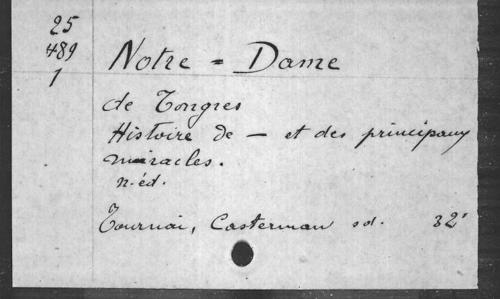 25
489
1
Notre = Dame
de Tongres
Histoire de — et des principaux
miracles.
n. éd.
Tournai, Casterman sd. 32°